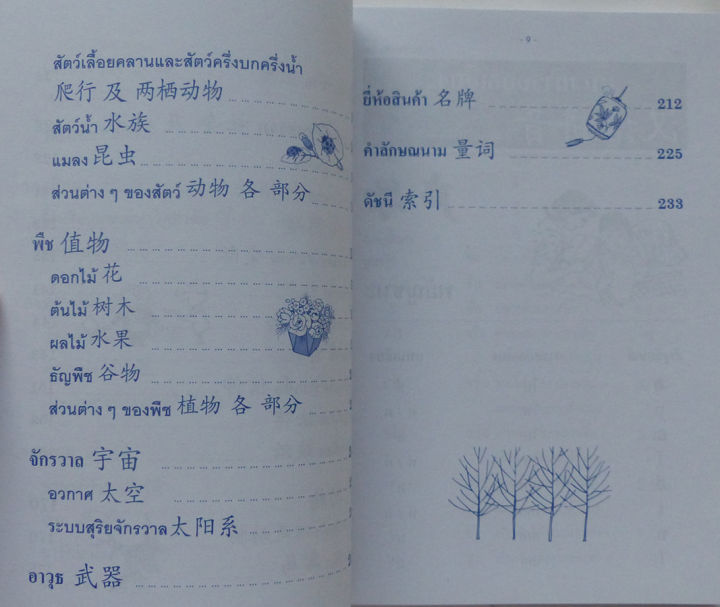 สัตว์เลื้อยคลานและสัตว์ครึ่งบกครึ่งน้ำ
爬行 及 两栖动物
สัตว์น้ำ 水族
แมลง 昆虫
ส่วนต่าง ๆ ของสัตว์ 动物 各 部分
พืช 值物
ดอกไม้ 花
ต้นไม้ 树木
ผลไม้ 水果
ธัญพืช 谷物
ส่วนต่าง ๆ ของพืช 植物 各 部分
จักรวาล 宇宙
อวกาศ 太空
ระบบสุริยจักรวาล 太阳系
อาวุธ 武器
- 9 -
ยี่ห้อสินค้า 名牌 212
คำลักษณนาม 量词 225
ดัชนี 索引 233